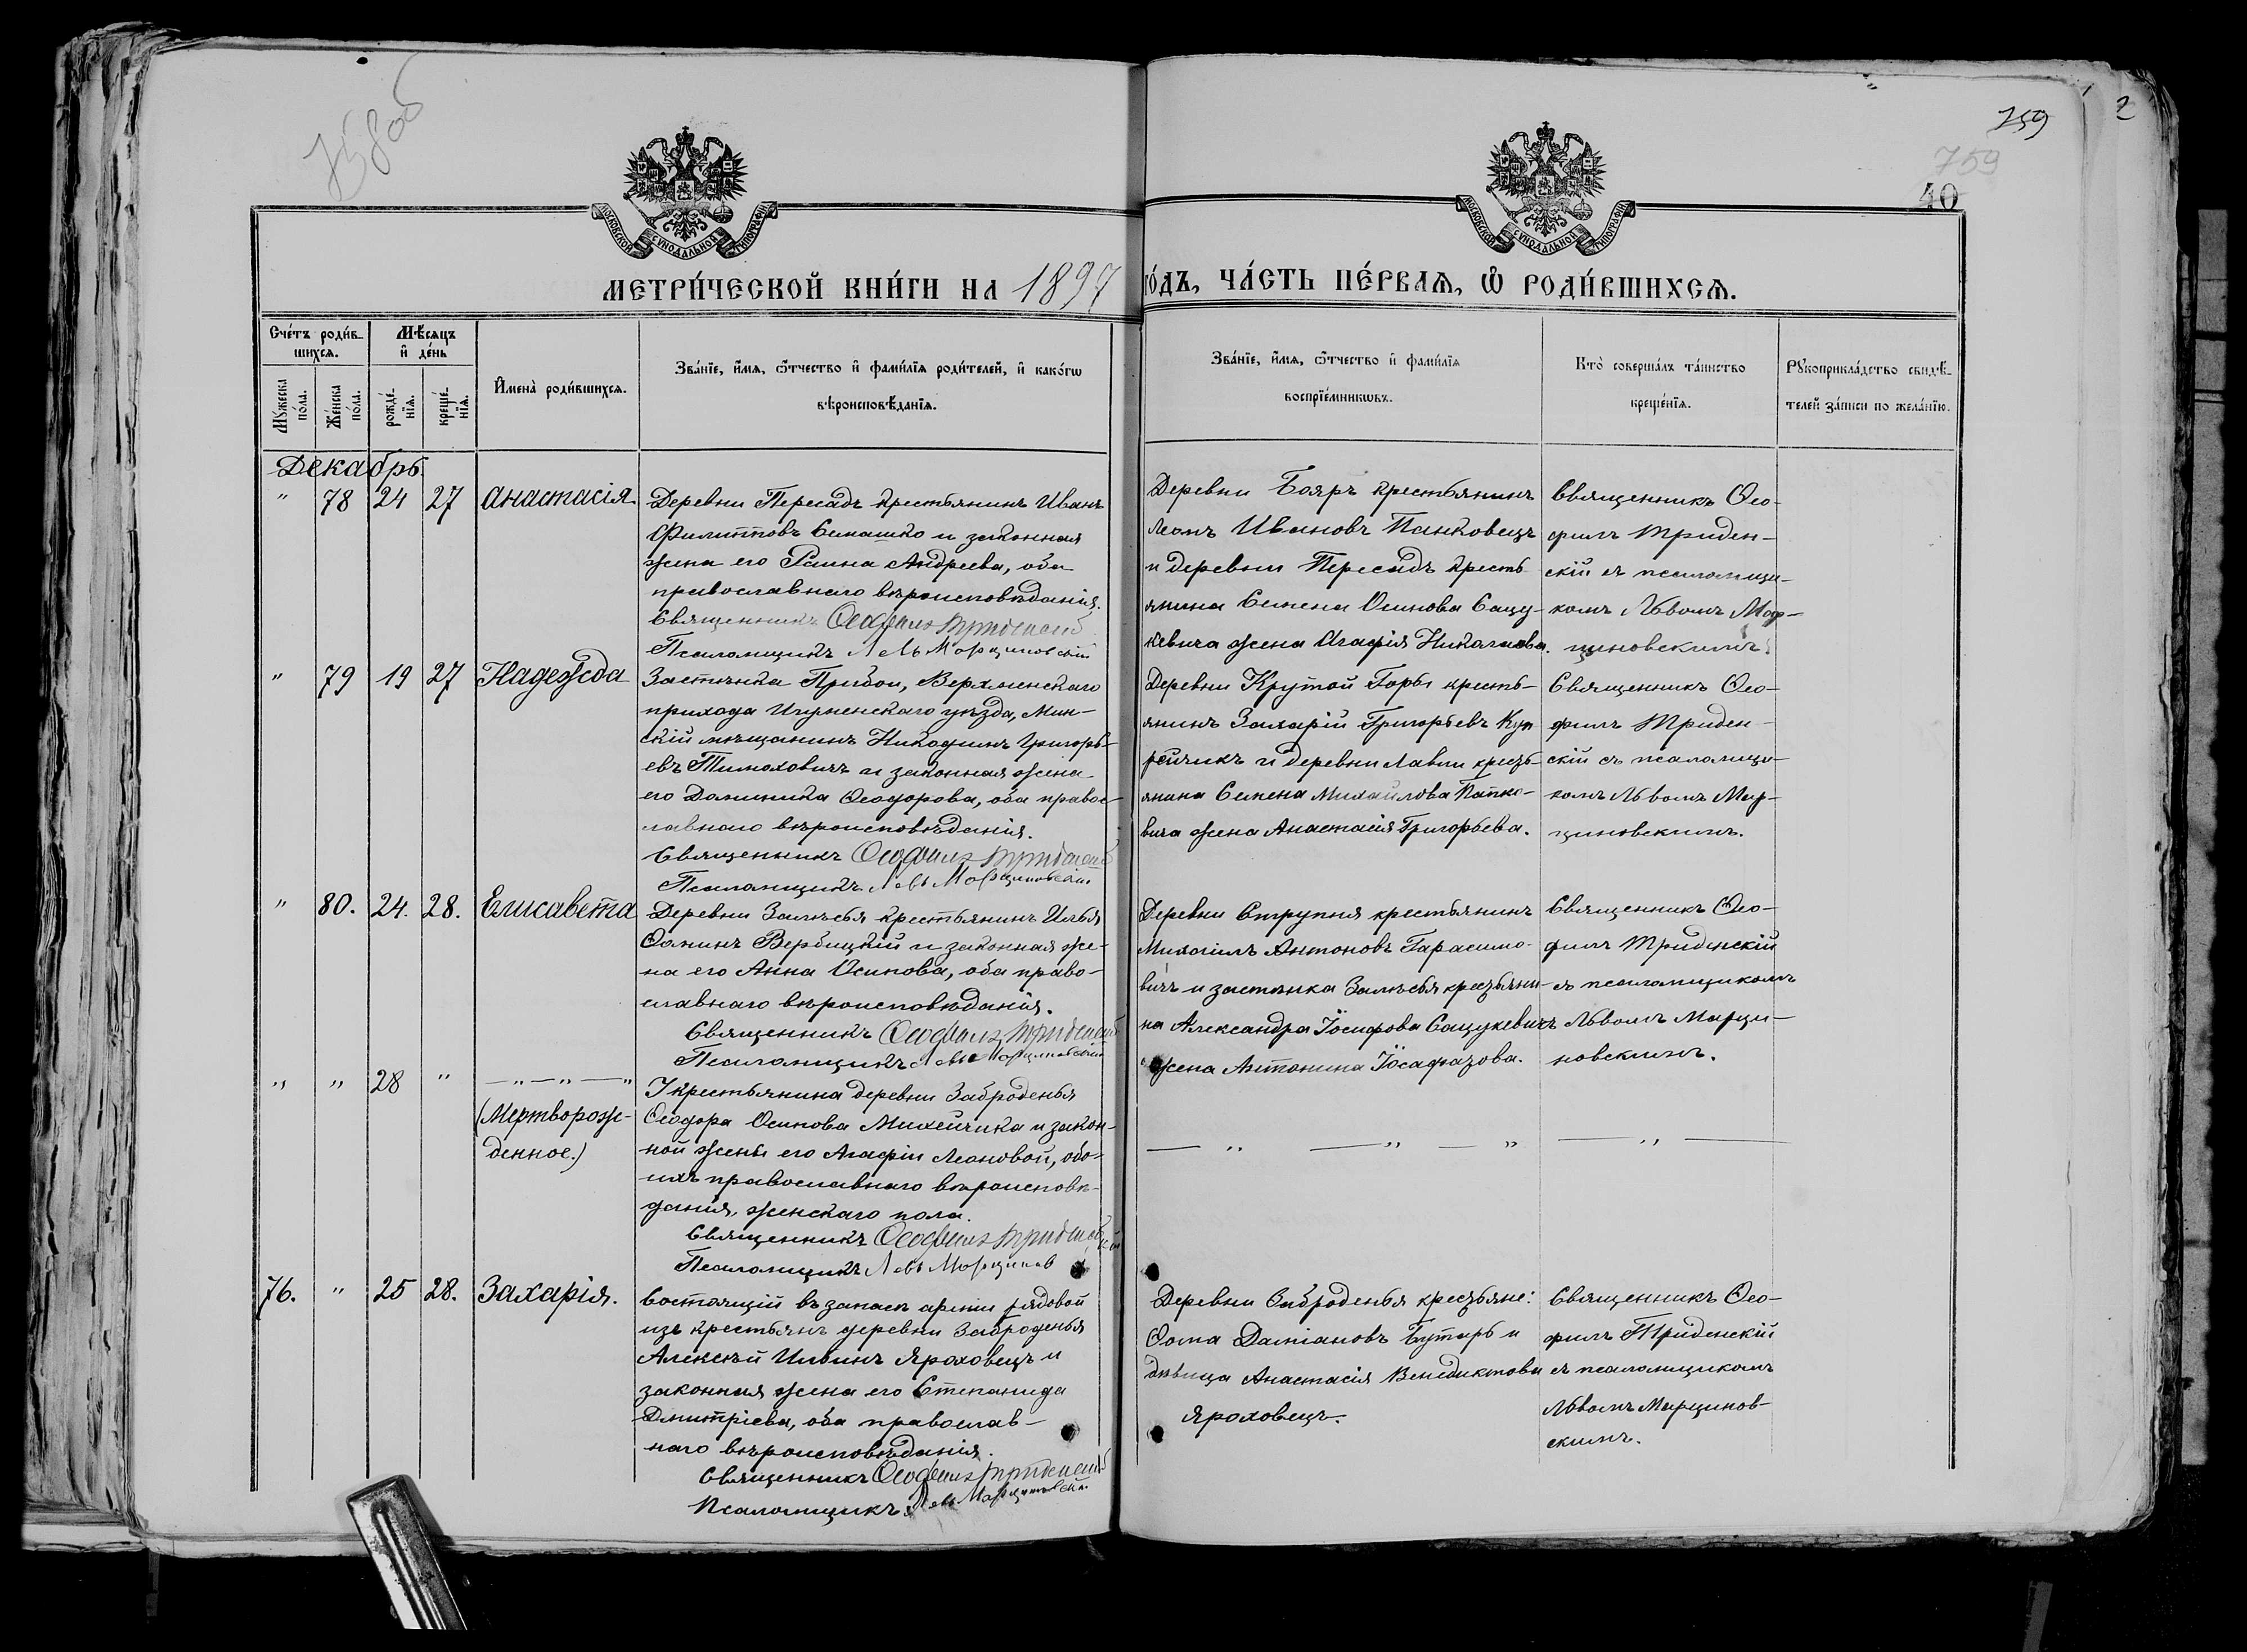 759
759
2
40
МОСКОВСКОЙ СѴНОДАЛЬНОЙ ТИПОГРАФІИ
МОСКОВСКОЙ СѴНОДАЛЬНОЙ ТИПОГРАФІИ
МЕТРИ́ЧЕСКОЙ КНИ́ГИ НА 1897 ГО́ДЪ, ЧА́СТЬ ПЕ́РВАѦ, Ѽ РОДИ́ВШИХСѦ.
Сче́тъ роди́в-
шихсѧ.
Мꙋжеска по́ла.
Же́нска по́ла.
Мѣ́сяцъ и де́нь
рожде́-нїѧ.
креще́-нїѧ.
И҆мена̀ роди́вшихсѧ.
Зва́нїе, и҆́мѧ, ѻ҆́тчество и҆ фами́лїѧ роди́телей, и҆ како́гѡ
вѣроисповѣ́данїѧ.
Зва́нїе, и҆́мѧ, ѻ҆́тчество и҆ фами́лїѧ
воспрїе́мникѡвъ.
Кто̀ соверша́лъ та́инство
креще́нїѧ.
Рꙋкоприкла́дство свидѣ́-
телей за́писи по жела́нїю.
Декабрь.
" 78 24 27 Анастасія
Деревни Пересадъ крестьянинъ Иванъ
Филипповъ Синашко и законная
жена его Раина Андреева, оба
православнаго вѣроисповѣданія.
Священникъ Ѳеофилъ Триденскій
Псаломщикъ Левъ Марциновскій
Деревни Бояръ крестьянинъ
Леонъ Ивановъ Панковецъ
и деревни Пересадъ кресть
янина Семена Осипова Сацу-
кевича жена Агафія Николаева.
Священникъ Ѳео-
филъ Триден-
скій съ псаломщи-
комъ Львомъ Мар-
циновскимъ.
" 79 19 27 Надежда
Застѣнка Прибои, Верхменскаго
прихода Игуменскаго уѣзда, Мин-
скій мѣщанинъ Никодимъ Григорь-
евъ Тимоховичъ и законная жена
его Доминика Ѳеодорова, оба правос-
лавнаго вѣроисповѣданія.
Священникъ Ѳеофилъ Триденскій
Псаломщикъ Левъ Марциновскій
Деревни Крутой Горы кресть-
янинъ Захарій Григорьевъ Кур
рейчикъ и деревни Лавли кресть-
янина Семена Михайлова Папко-
вича жена Анастасія Григорьева.
Священникъ Ѳео-
филъ Триден-
скій съ псаломщи-
комъ Львомъ Мар-
циновскимъ.
" 80. 24. 28. Елисавета
Деревни Залѣсья крестьянинъ Илья
Ѳоминъ Вербицкій и законная же-
на его Анна Осипова, оба право-
славнаго вѣроисповѣданія.
Священникъ Ѳеофилъ Триденскій
Псаломщикъ Левъ Марциновскій
Деревни Струпня крестьянинъ
Михаилъ Антоновъ Гарасимо-
вичъ и застѣнка Залѣсья крестьяни-
на Александра Іосифова Сацукевичъ
жена Антонина Іосафатова.
Священникъ Ѳео-
филъ Триденскій
съ псаломщикомъ
Львомъ Марци-
новскимъ.
" " 28 " — " — " — "
(Мертворож-
денное.)
У крестьянина деревни Заброденья
Ѳеодора Осипова Михейчика и закон-
ной жены его Агафіи Леоновой, обо-
ихъ православнаго вѣроисповѣ-
данія, женскаго пола.
Священникъ Ѳеофилъ Триденскій
Псаломщикъ Левъ Марцинов
— " — " — " — " —
76. " 25 28. Захарія.
Состоящій въ запасѣ арміи рядовой
изъ крестьянъ деревни Заброденья
Алексѣй Ильинъ Яроховецъ и
законная жена его Степанида
Дмитріева, оба православ-
наго вѣроисповѣданія.
Священникъ Ѳеофилъ Триденскій
Псаломщикъ Левъ Марциновскій.
Деревни Заброденья крестьяне:
Ѳома Даміановъ Бутаръ и
дѣвица Анастасія Венедиктова
Яроховецъ.
Священникъ Ѳео-
филъ Триденскій
съ псаломщикомъ
Львомъ Марцинов-
скимъ.